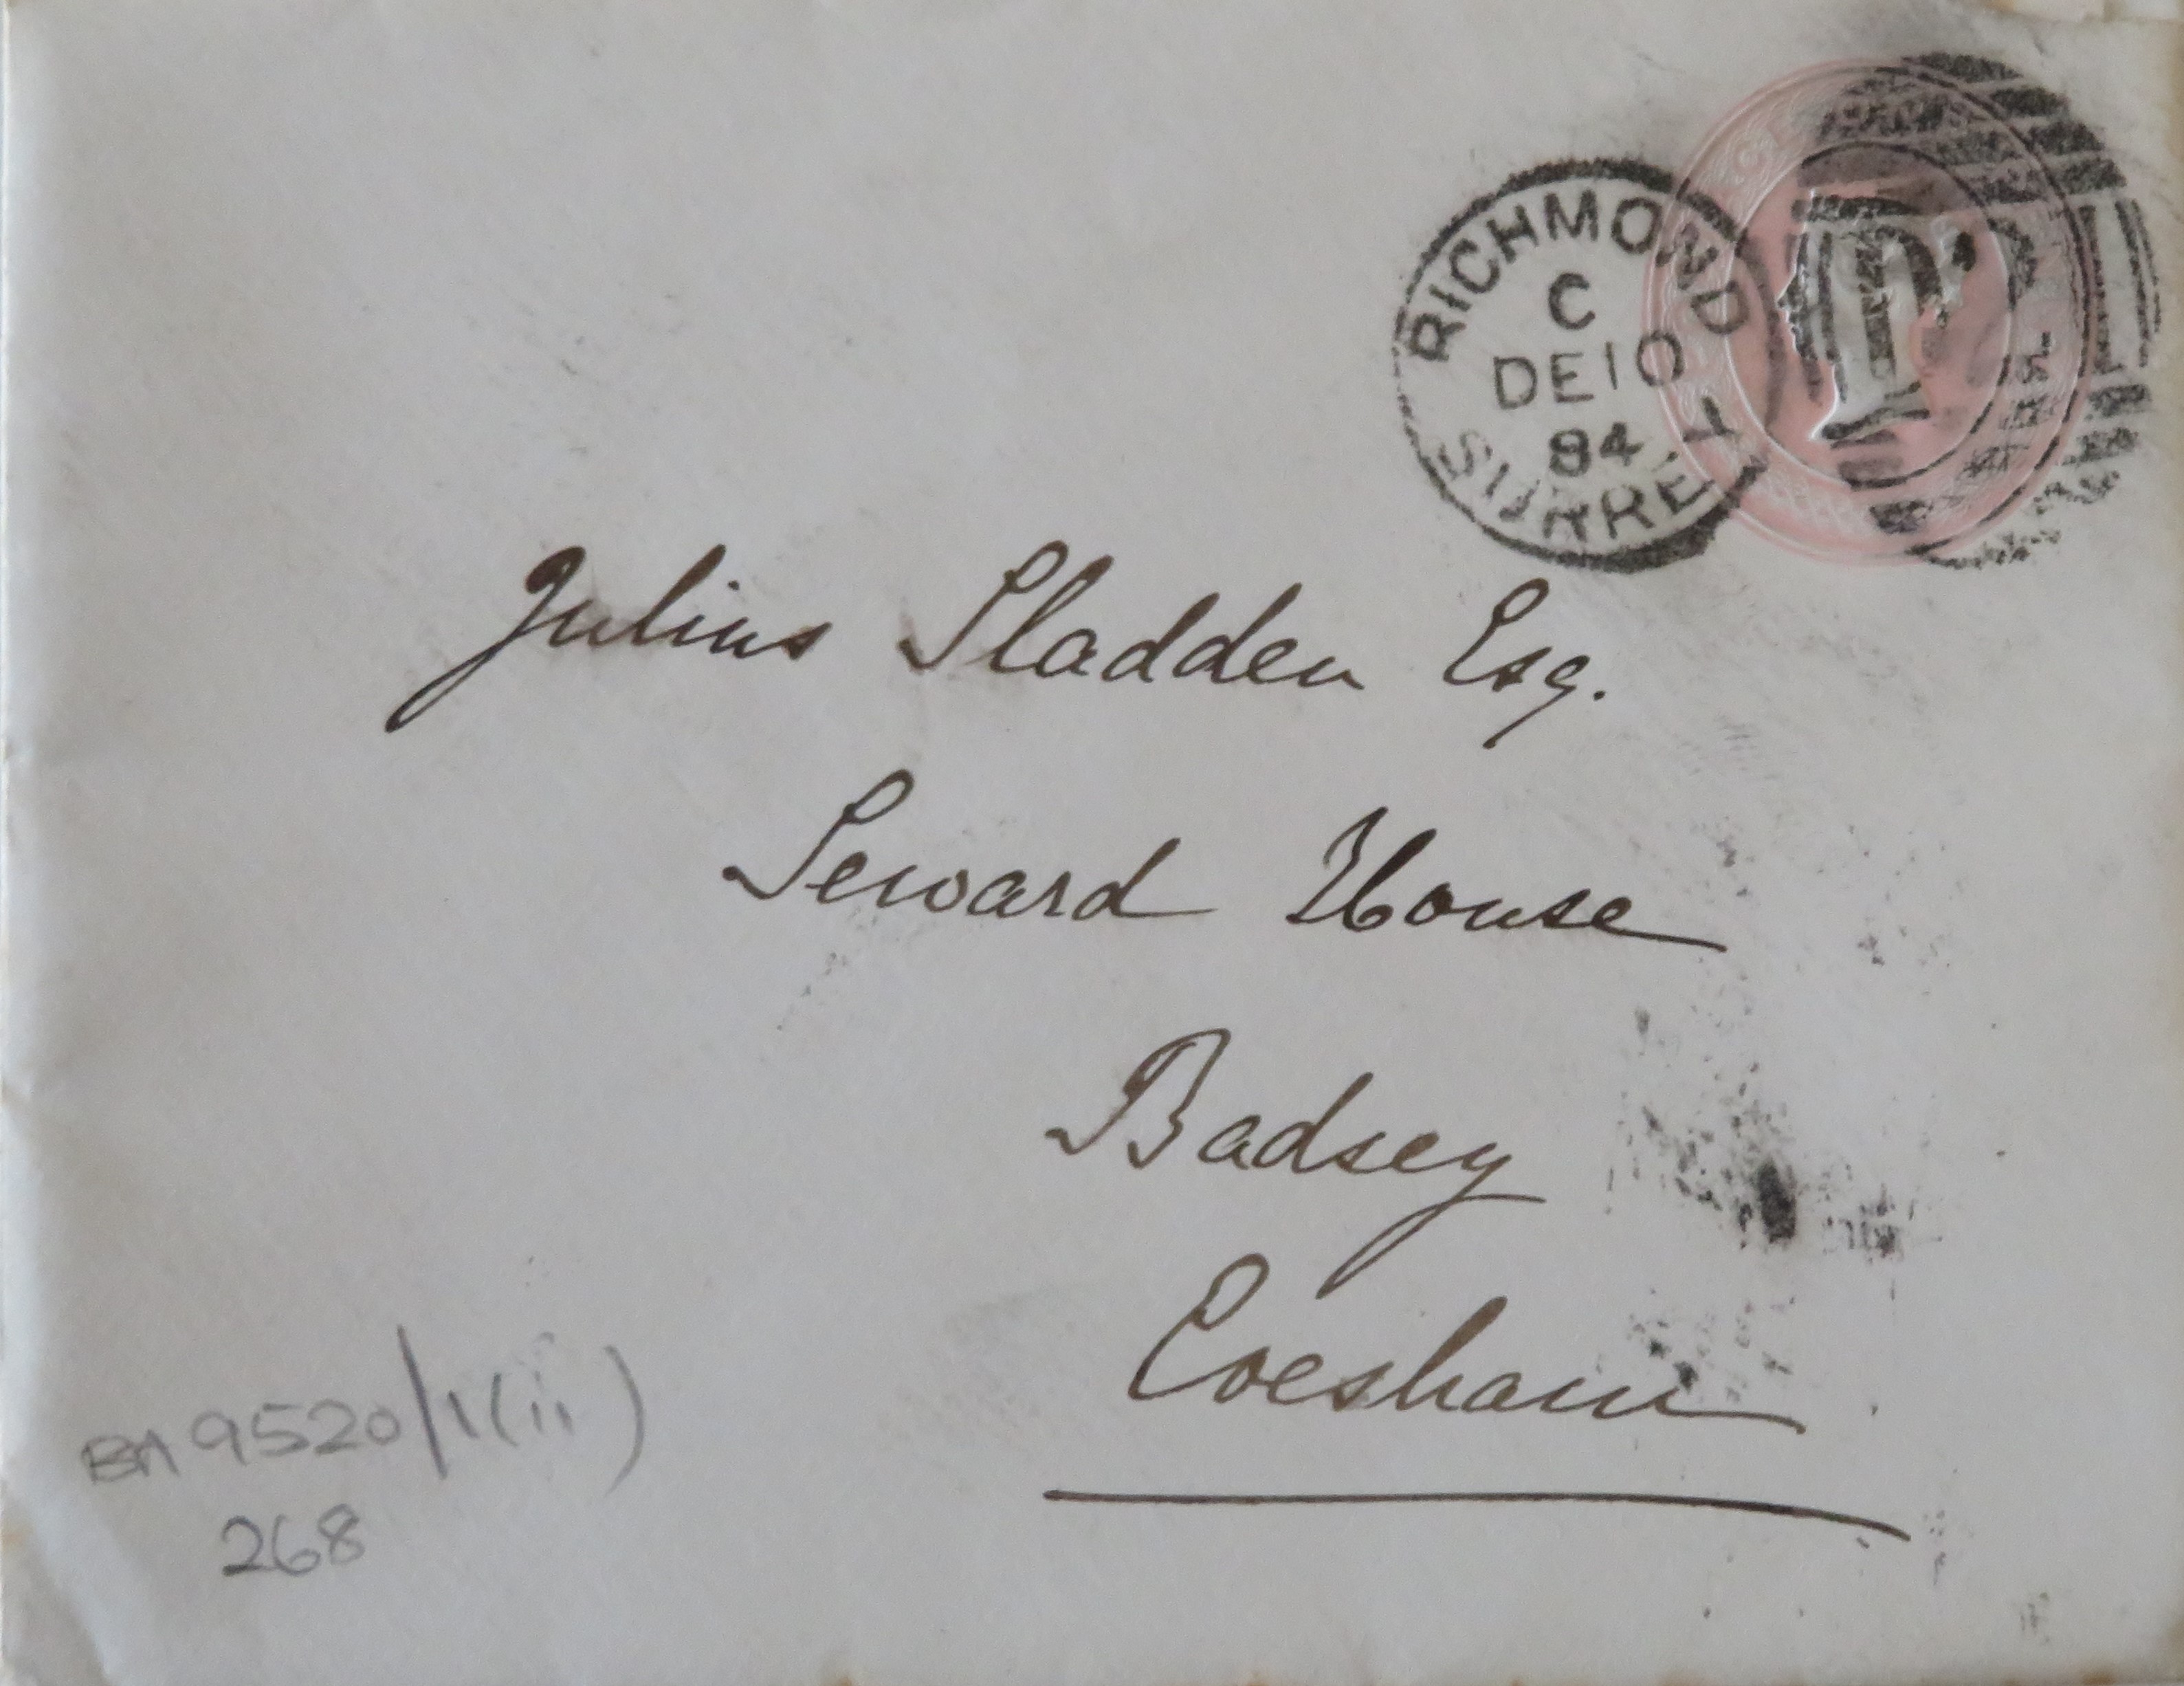 RICHMOND
C
DE 10
84
SURREY
Julius Sladden Esq.
Seward House
Badsey
Evesham
BA 9520/1(ii)
268